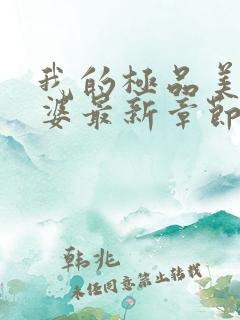 我的極品美
婆最新章節
韩兆
未经同意禁止转载